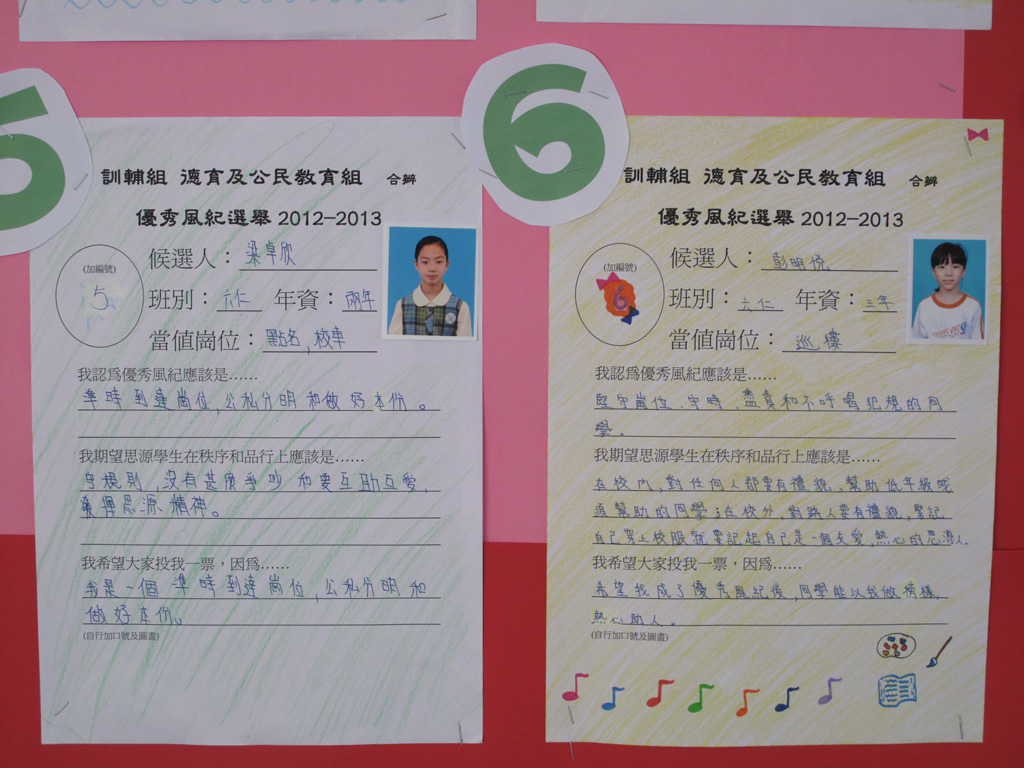 5
訓輔組 德育及公民教育組 合辦
優秀風紀選舉 2012-2013
(加編號)
5
候選人：梁卓欣
班別：六仁 年資：兩年
當值崗位：點名,校車
我認爲優秀風紀應該是……
準時到達崗位,公私分明和做好本份。
我期望思源學生在秩序和品行上應該是……
守規則,沒有甚麼爭吵和要互助互愛,
發揮思源精神。
我希望大家投我一票，因爲……
我是一個準時到達崗位,公私分明和
做好本份。
(自行加口號及圖畫)
6
訓輔組 德育及公民教育組 合辦
優秀風紀選舉 2012-2013
(加編號)
6
候選人：彭明悅
班別：六仁 年資：三年
當值崗位：巡樓
我認爲優秀風紀應該是……
堅守崗位、守時,盡責和不呼喝犯規的同
學。
我期望思源學生在秩序和品行上應該是……
在校內,對任何人都要有禮貌,幫助低年級或
須幫助的同學;在校外,對路人要有禮貌,要記
自己穿上校服就要記起自己是一個友愛,熱心的思源人.
我希望大家投我一票，因爲……
希望我成了優秀風紀後,同學能以我做榜樣,
熱心助人。
(自行加口號及圖畫)